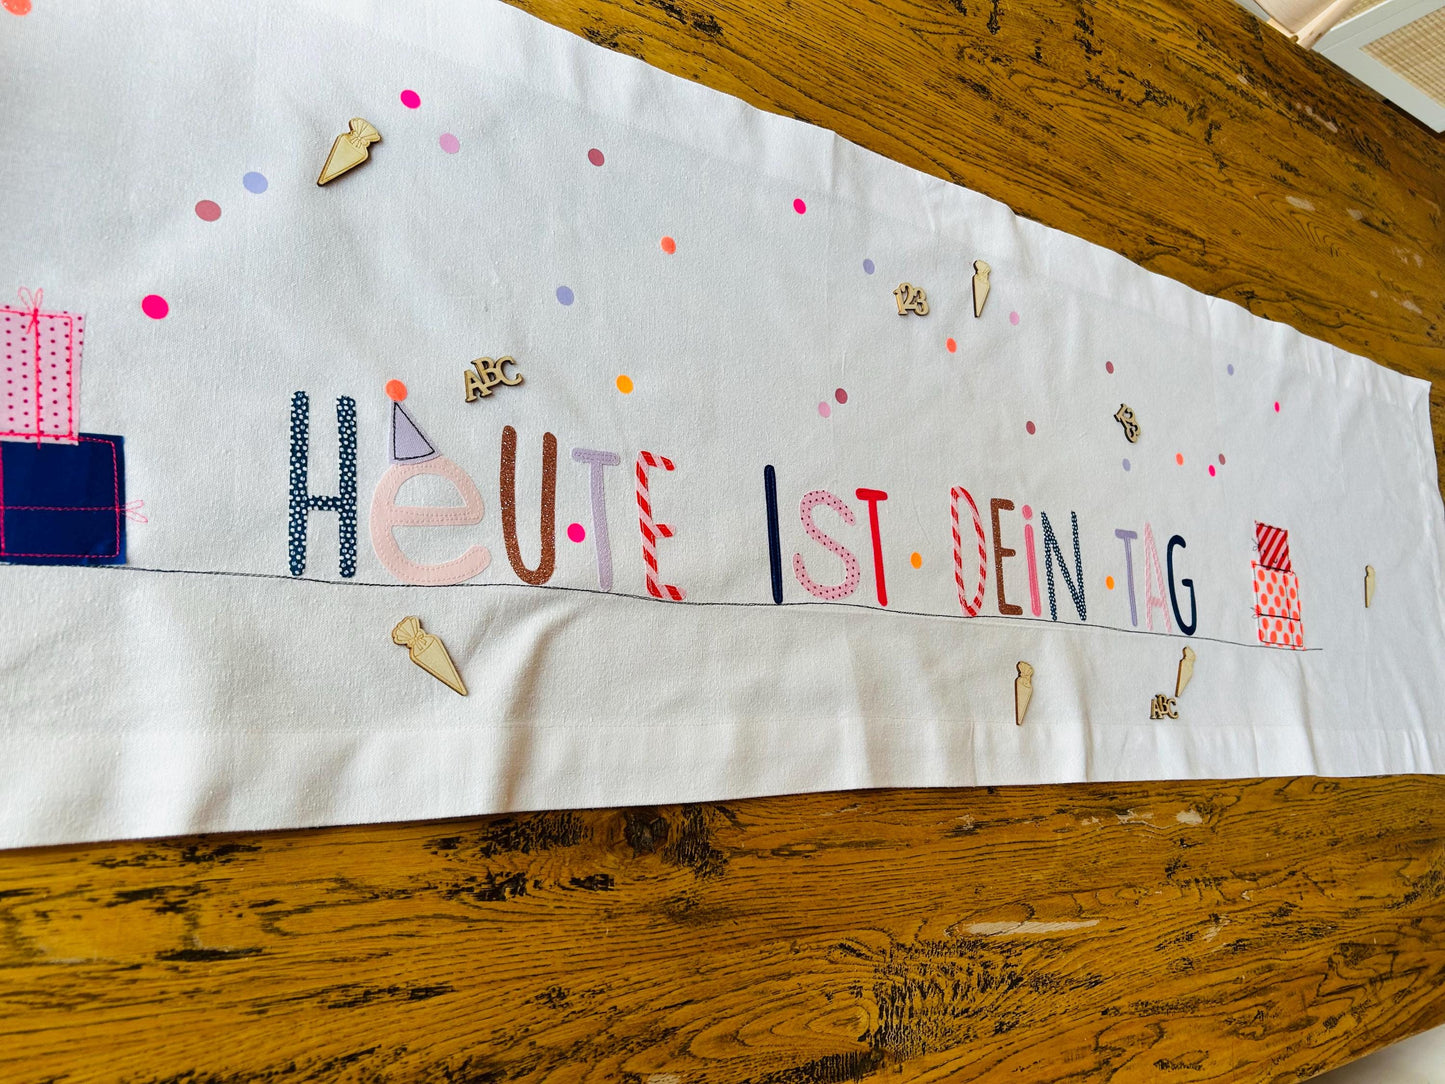 123
ABC
123
HeUTE IST DEiN TAG
ABC